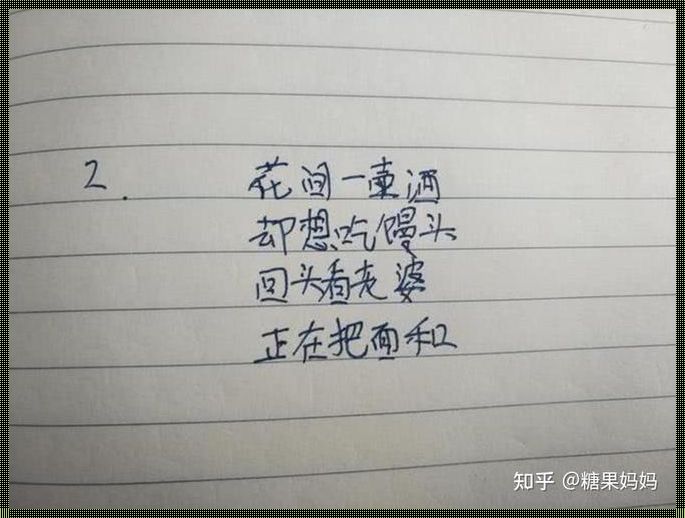 2.
花间一壶酒
却想吃馒头
回头看老婆
正在把面和
知乎 @糖果妈妈